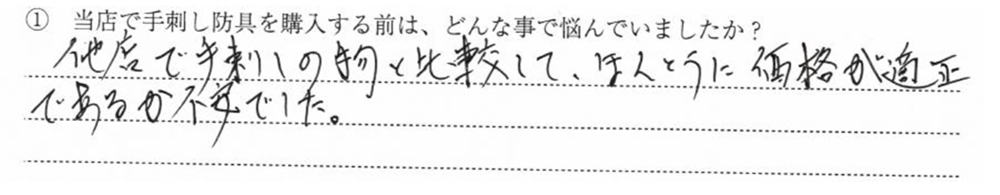 ① 当店で手刺し防具を購入する前は、どんな事で悩んでいましたか？
他店で手刺しの物と比較して、ほんとうに価格が適正
であるか不安でした。